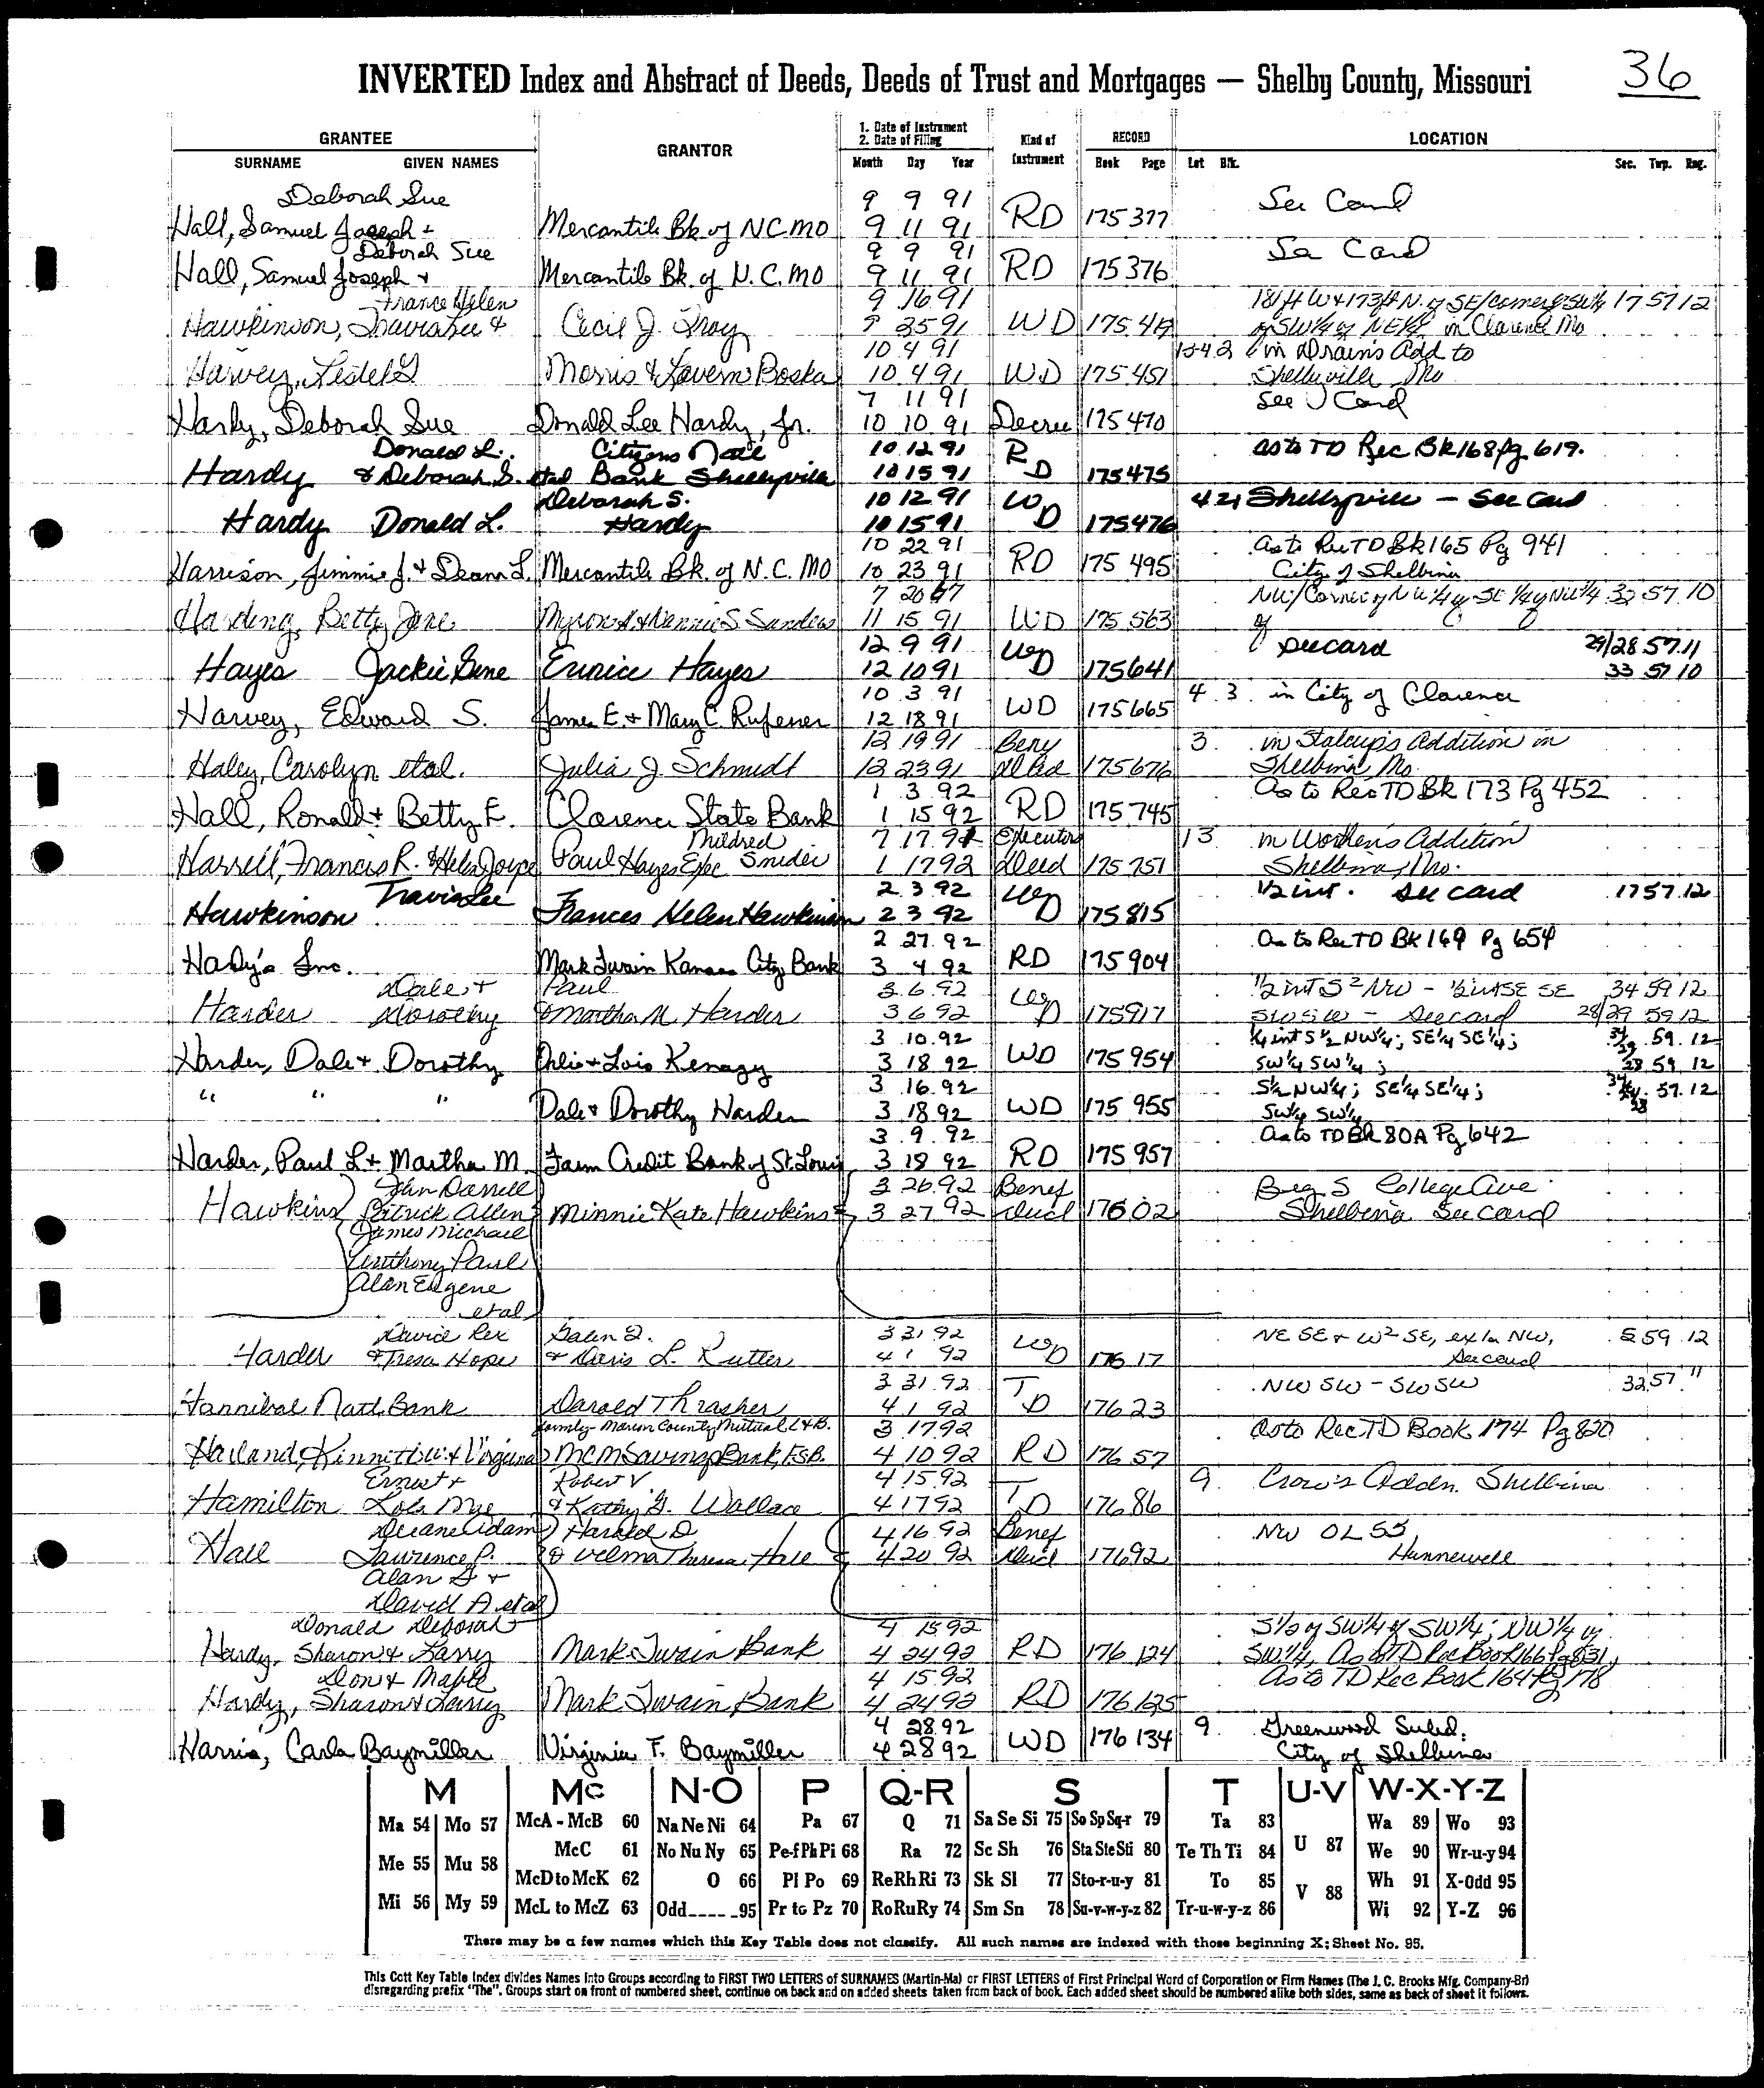 36
INVERTED Index and Abstract of Deeds, Deeds of Trust and Mortgages — Shelby County, Missouri
GRANTEE GRANTOR 1. Date of Instrument 2. Date of Filing Kind of Instrument RECORD LOCATION
SURNAME GIVEN NAMES Month Day Year Book Page Lot Blk. Sec. Twp. Rng.
Deborah Sue 9 9 91 See Card
Hall, Samuel Joseph + Mercantile Bk. of NC MO 9 11 91 RD 175 377
Deborah Sue 9 9 91 See Card
Hall, Samuel Joseph + Mercantile Bk. of N.C. MO 9 11 91 RD 175 376
France Helen 9 16 91 181 ft W + 173 ft N. of SE/corner of SW¼ 17 57 12
Hawkinson, Travis Lee & Cecil J. Troy 9 25 91 WD 175 of SW¼ of NE¼ in Clarence Mo
10 4 91 in Drain's Add to
Harvey, Morris & Lavern Boska 10 4 91 WD 175 451 Shelbyville Mo
7 11 91 See Card
Hardy, Deborah Sue Donald Lee Hardy, Jr. 10 10 91 Decree 175 470
Donald L. Citizens Natl 10 12 91 R as to TD Rec Bk 168 Pg 619.
Hardy & Deborah S. etal Bank Shelbyville 10 15 91 D 175 475
Deborah S. 10 12 91 W 4 21 Shelbyville - See Card
Hardy Donald L. Hardy 10 15 91 D 175 476
10 22 91 As to Rec TD Bk 165 Pg 941
Harrison, Jimmie J. + Deann L. Mercantile Bk. of N.C. MO 10 23 91 RD 175 495 City of Shelbina
7 20 NW/Corner of NW¼ of SE¼ of NW¼ 32 57 10
Harding, Betty Jane Myron & S. Sanders 11 15 91 WD 175 563
12 9 91 See card 29/28 57 11
Hayes Jackie Gene Eunice Hayes 12 10 91 WD 175 641 33 57 10
10 3 91 4 3 in City of Clarence
Harvey, Edward S. James E. + Mary C. Rufener 12 18 91 WD 175 665
12 19 91 Beny 3 in Stalcup's Addition in
Haley, Carolyn etal. Julia J. Schmidt 12 23 91 Deed 175 676 Shelbina, Mo.
1 3 92 As to Rec TD Bk 173 Pg 452
Hall, Ronald + Betty E. Clarence State Bank 1 15 92 RD 175 745
Mildred 7 17 91 Executors 13 in Worthen's Addition
Harrell, Francis R. & Helen Joyce Paul Hayes Exec Snider 1 17 92 Deed 175 751 Shelbina, Mo.
Travis Lee 2 3 92 ½ int. See card 17 57 12
Hawkinson Frances Helen Hawkinson 2 3 92 WD 175 815
2 27 92 As to Rec TD Bk 169 Pg 654
Hardy's Inc. Mark Twain Kansas City Bank 3 4 92 RD 175 904
Dale + Paul 3 6 92 ½ int S² NW - ½ int SE SE 34 59 12
Harder Dorothy & Martha M Harder 3 6 92 WD 175 917 SW SW - See card 28/29 59 12
3 10 92 ¼ int S½ NW¼; SE¼ SE¼; 59 12
Harder, Dale + Dorothy + Lois Kenagy 3 18 92 WD 175 954 SW¼ SW¼; 28 59 12
" " " 3 16 92 S½ NW¼; SE¼ SE¼; 57 12
Dale + Dorothy Harder 3 18 92 WD 175 955 SW¼ SW¼
3 9 92 As to TD Bk 80A Pg 642
Harder, Paul L + Martha M. Farm Credit Bank of St. Louis 3 18 92 RD 175 957
John Darrell 3 26 92 Benef Beg S College Ave
Hawkins Patrick Allen Minnie Kate Hawkins 3 27 92 Deed 176 02 Shelbina See card
James Michael
Anthony Paul
Alan Eugene
etal
David Rex Galen D. 3 31 92 NE SE + W² SE, ex 1a NW, 5 59 12
Harder & Tresa Hope & Doris L. Rutter 4 1 92 WD 176 17 See card
3 31 92 T NW SW - SW SW 32 57 11
Hannibal Natl Bank Darold Thrasher 4 1 92 D 176 23
formerly Marion County Mutual L & B. 3 17 92 As to Rec TD Book 174 Pg 820
MCM Savings Bank, F.S.B. 4 10 92 RD 176 57
Ernest + Robert V. 4 15 92 T 9 Crow's Addn. Shelbina
Hamilton Lola Mae & Kathy G. Wallace 4 17 92 D 176 86
Duane Adam Harold D 4 16 92 Benef NW OL 55,
Hall Lawrence P. & Velma Theresa Hall 4 20 92 Deed 176 92 Hunnewell
Alan G +
David A etal
Donald Deborah 4 15 92 S½ of SW¼ of SW¼; NW¼ of
Hardy, Sharon & Larry Mark Twain Bank 4 24 92 RD 176 124 SW¼, As to TD Rec Book 166 Pg 831,
Don & Maple 4 15 92 As to TD Rec Book 164 Pg 178
Hardy, Sharon & Larry Mark Twain Bank 4 24 92 RD 176 125
4 28 92 9 Greenwood Subd.
Harris, Carla Baymiller Virginia F. Baymiller 4 28 92 WD 176 134 City of Shelbina
M Mc N-O P Q-R S T U-V W-X-Y-Z
Ma 54 Mo 57 McA - McB 60 Na Ne Ni 64 Pa 67 Q 71 Sa Se Si 75 So Sp Sq-r 79 Ta 83 U 87 Wa 89 Wo 93
Me 55 Mu 58 McC 61 No Nu Ny 65 Pe-f Ph Pi 68 Ra 72 Sc Sh 76 Sta Ste Sti 80 Te Th Ti 84 V 88 We 90 Wr-u-y 94
Mi 56 My 59 McD to McK 62 O 66 Pl Po 69 Re Rh Ri 73 Sk Sl 77 Sto-r-u-y 81 To 85 Wh 91 X-Odd 95
McL to McZ 63 Odd_____95 Pr to Pz 70 Ro Ru Ry 74 Sm Sn 78 Su-v-w-y-z 82 Tr-u-w-y-z 86 Wi 92 Y-Z 96
There may be a few names which this Key Table does not classify. All such names are indexed with those beginning X; Sheet No. 95.
This Cott Key Table Index divides Names into Groups according to FIRST TWO LETTERS of SURNAMES (Martin-Ma) or FIRST LETTERS of First Principal Word of Corporation or Firm Names (The J. C. Brooks Mfg. Company-Br)
disregarding prefix "The". Groups start on front of numbered sheet, continue on back and on added sheets taken from back of book. Each added sheet should be numbered alike both sides, same as back of sheet it follows.